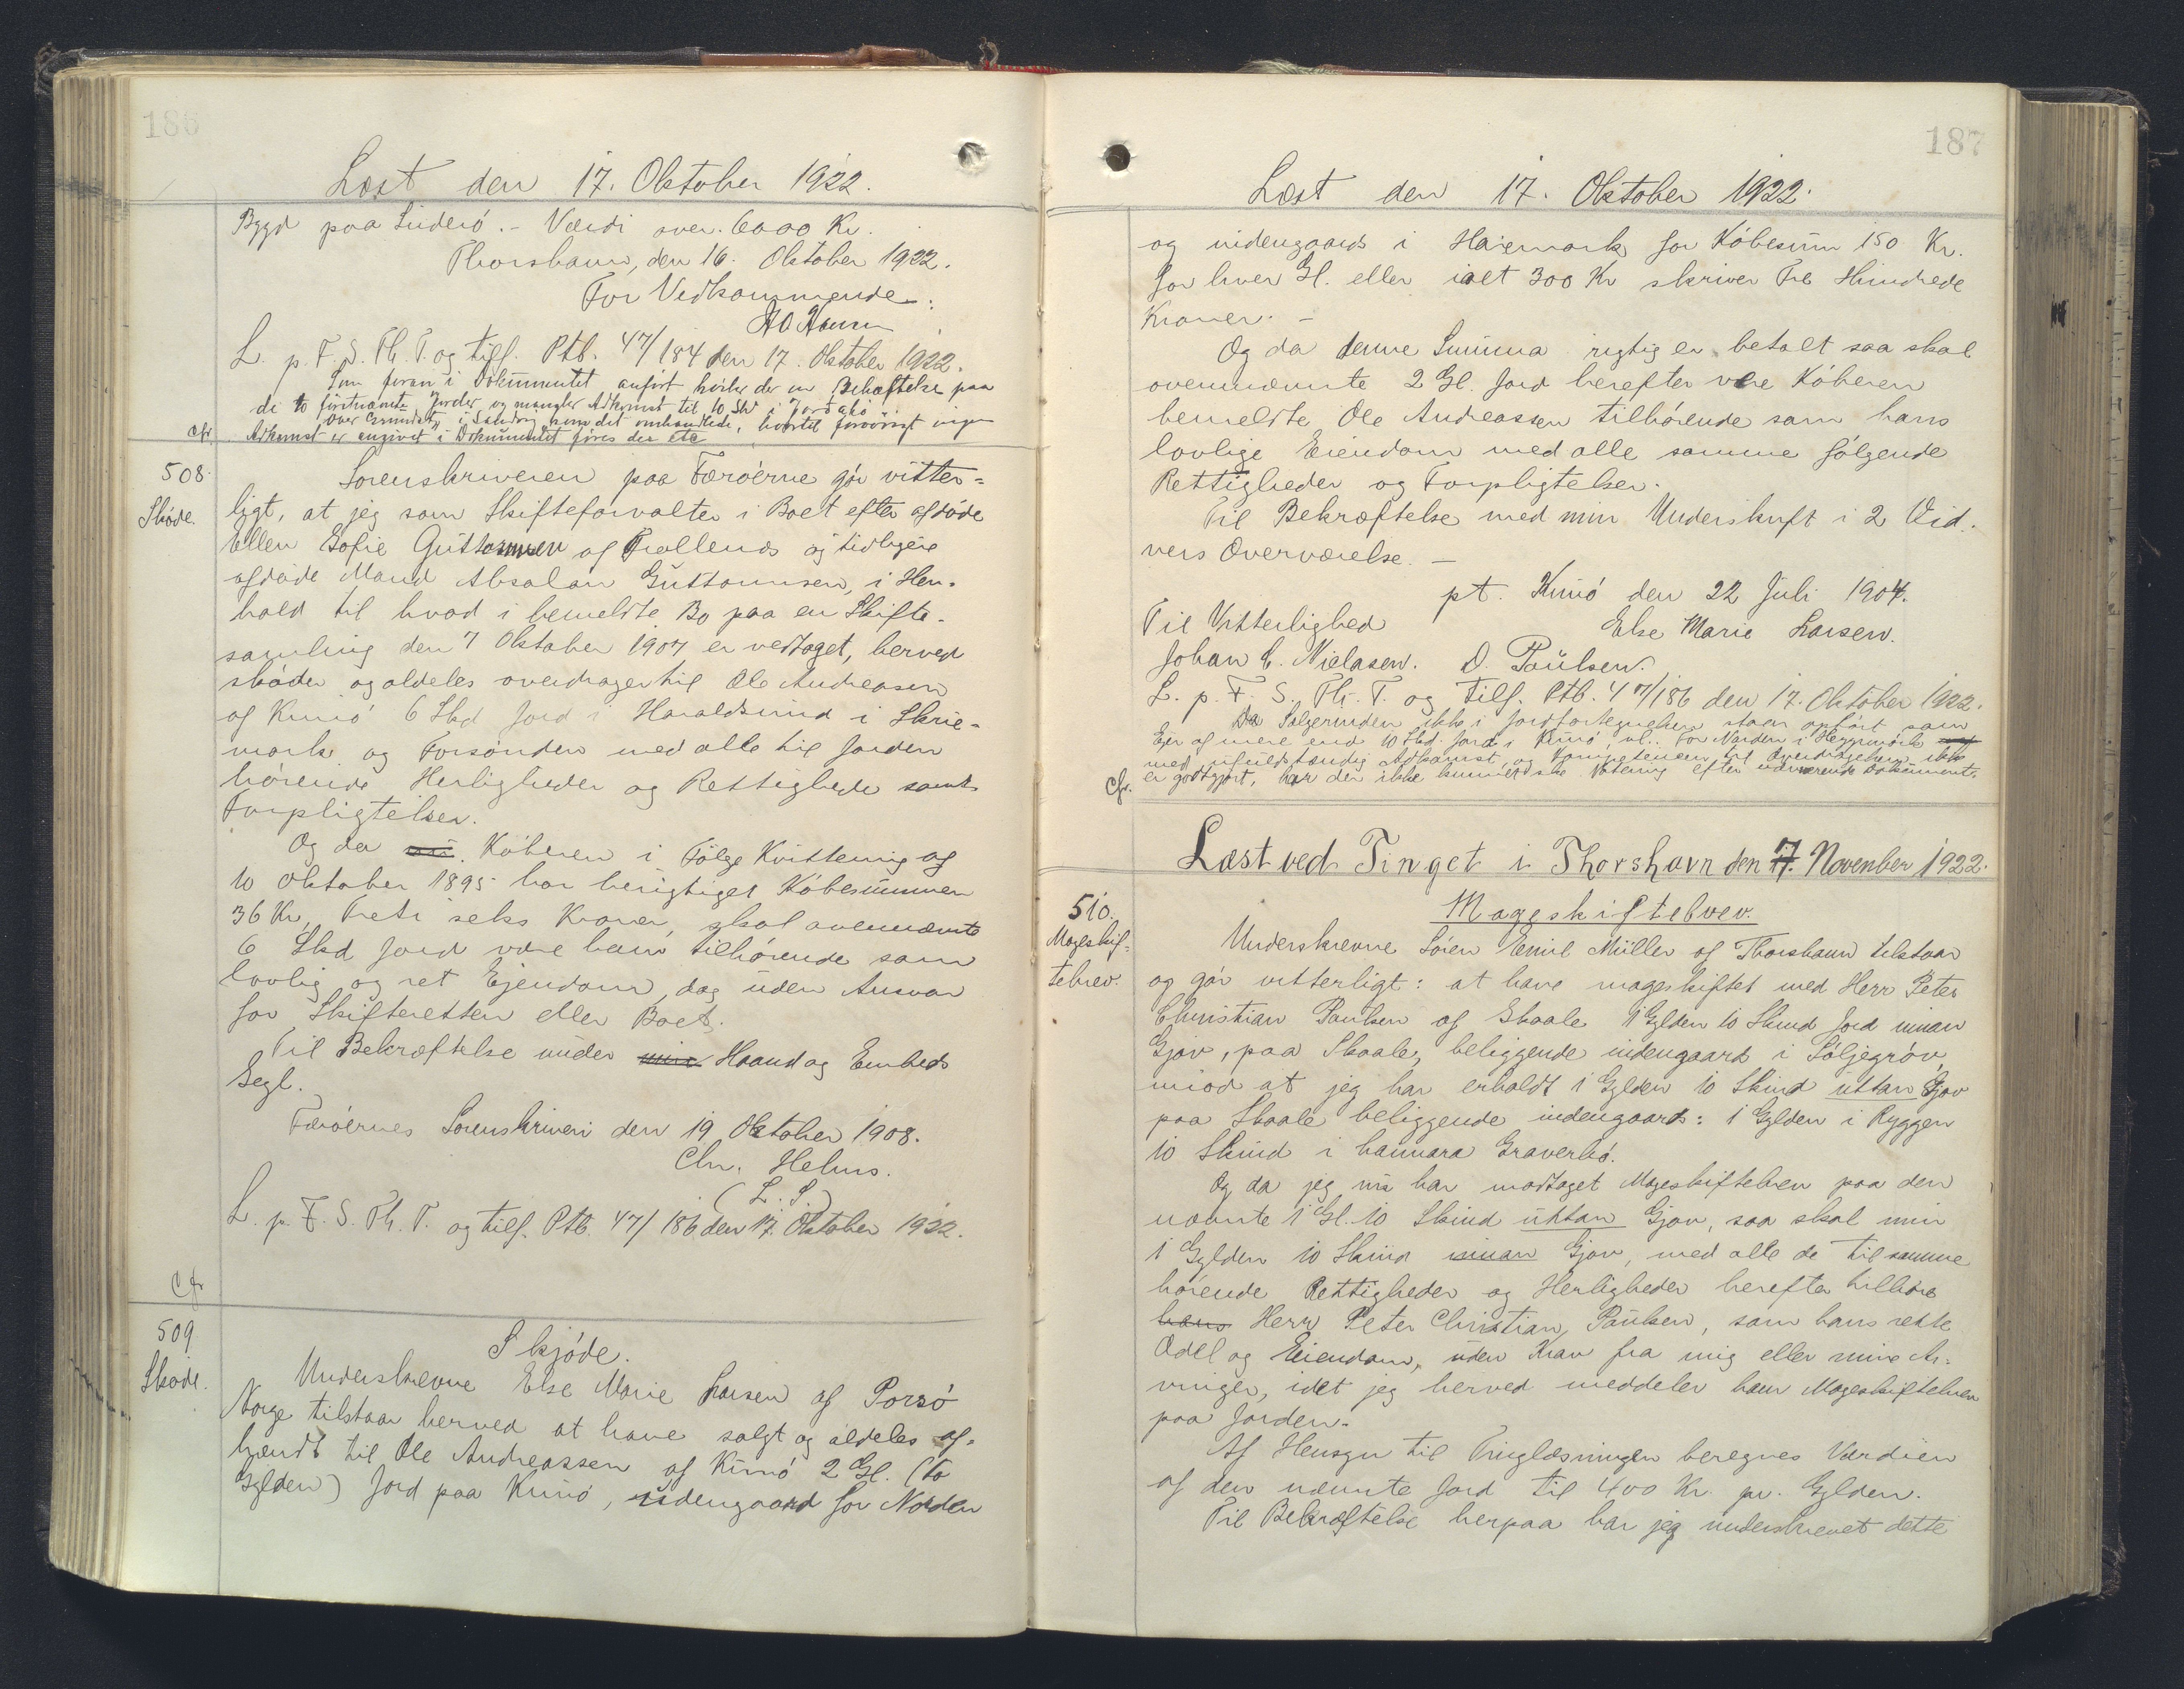 186
Læst den 17. Oktober 1922.
Bygd paa Suderö. - Værdi over 6000 Kr.
Thorshavn, den 16. Oktober 1922.
For Vedkommende:
L. p. F. S. Th. T. og tilf. Ptb. 47/184 den 17. Oktober 1922.
Som foran i Dokumentet anført hviler der en Behæftelse paa
de to førstnævnte Jorder og mangler Adkomst til 10 Skd i
Adkomst er angivet i Dokumentet
cfr
508.
Sköde.
Sorenskriveren paa Færöerne gör vitter=
ligt, at jeg som Skifteforvalter i Boet efter afdöde
Ellen Sofie Guttormsen af Trollenæs og tidligere
afdöde Mand Absalon Guttormsen, i Hen-
hold til hvad i bemeldte Bo paa en Skifte-
samling den 7 Oktober 1907 er vedtaget, herved
sköder og aldeles overdrager til Ole Andreasen
af Kunö 6 Skd Jord i Haraldsund i Skrie-
mark og Forsönden med alle til Jorden
hörende Herligheder og Rettigheder samt
Forpligtelser.
Og da Köberen i Fölge Kvittering af
10 Oktober 1895 har berigtiget Köbesummen
36 Kr, Treti seks Kroner, skal ovennævnte
6 Skd Jord være ham tilhörende som
lovlig og ret Ejendom, dog uden Ansvar
for Skifteretten eller Boet.
Til Bekræftelse under min Haand og Embeds
Segl.
Færöernes Sorenskriveri den 19 Oktober 1908.
Chr. Helms.
(L. S.)
L. p. F. S. Th. T. og tilf. Ptb. 47/186 den 17. Oktober 1922.
cfr
509
Sköde.
Skjöde.
Underskrevne Else Marie Larsen af Porsö
Norge tilstaar herved at have solgt og aldeles af-
hændt til Ole Andreassen af Kunö 2 Gl. (to
Gylden) Jord paa Kunö, udengaard for Norden
187
Læst den 17. Oktober 1922.
og udengaards i Haiemark for Köbesum 150 Kr.
for hver Gl. eller ialt 300 Kr skriver Tre Hundrede
Kroner. -
Og da denne Summa rigtig er betalt saa skal
ovennævnte 2 Gl. Jord herefter være Köberen
bemeldte Ole Andreassen tilhörende som hans
lovlige Eiendom med alle samme fölgende
Rettigheder og Forpligtelser.
Til Bekræftelse med min Underskrift i 2 Vid-
ners Overværelse. -
pt. Kunö den 22 Juli 1904.
Til Vitterlighed
Else Marie Larsen.
Johan C. Nielasen. D. Poulsen.
L. p. F. S. Th. T. og tilf. Ptb. 47/186 den 17. Oktober 1922.
Da Sælgerinden ikke i Jordfortegnelsen staar opført som
Ejer af mere end 10 Skd. Jord i Kunö, vl.. For Norden i Heygmörk
med ufuldstændig Adkomst, og Kompetencen til Overdragelsen ikke
er godtgjort, har der ikke kunnet ske Notering efter nærværende Dokument.
Cfr.
Læst ved Tinget i Thorshavn den 7. November 1922.
510.
Mageskif-
tebrev.
Mageskiftebrev.
Underskrevne Sören Emil Müller af Thorshavn tilstaar
og gör vitterligt: at have mageskiftet med Herr Peter
Christian Poulsen af Skaale 1 Gylden 10 Skind Jord innan
Gjov, paa Skaale, beliggende indengaard i Söljegröv,
imod at jeg har erholdt 1 Gylden 10 Skind uttan Gjov
paa Skaale beliggende indengaards: 1 Gylden i Ryggen
10 Skind i hannara Graverbö.
Og da jeg nu har modtaget Mageskiftebrev paa den
nævnte 1 Gl. 10 Skind uttan Gjov, saa skal min
1 Gylden 10 Skind innan Gjov, med alle de til samme
hörende Rettigheder og Herligheder herefter tilhöre
hans Herr Peter Christian Poulsen, som hans rette
Odel og Eiendom, uden Krav fra mig eller mine Ar-
vinger, idet jeg herved meddeler ham Mageskiftebrev
paa Jorden.
Af Hensyn til Tinglæsningen beregnes Værdien
af den nævnte Jord til 400 Kr. pr. Gylden.
Til Bekræftelse herpaa har jeg underskrevet dette